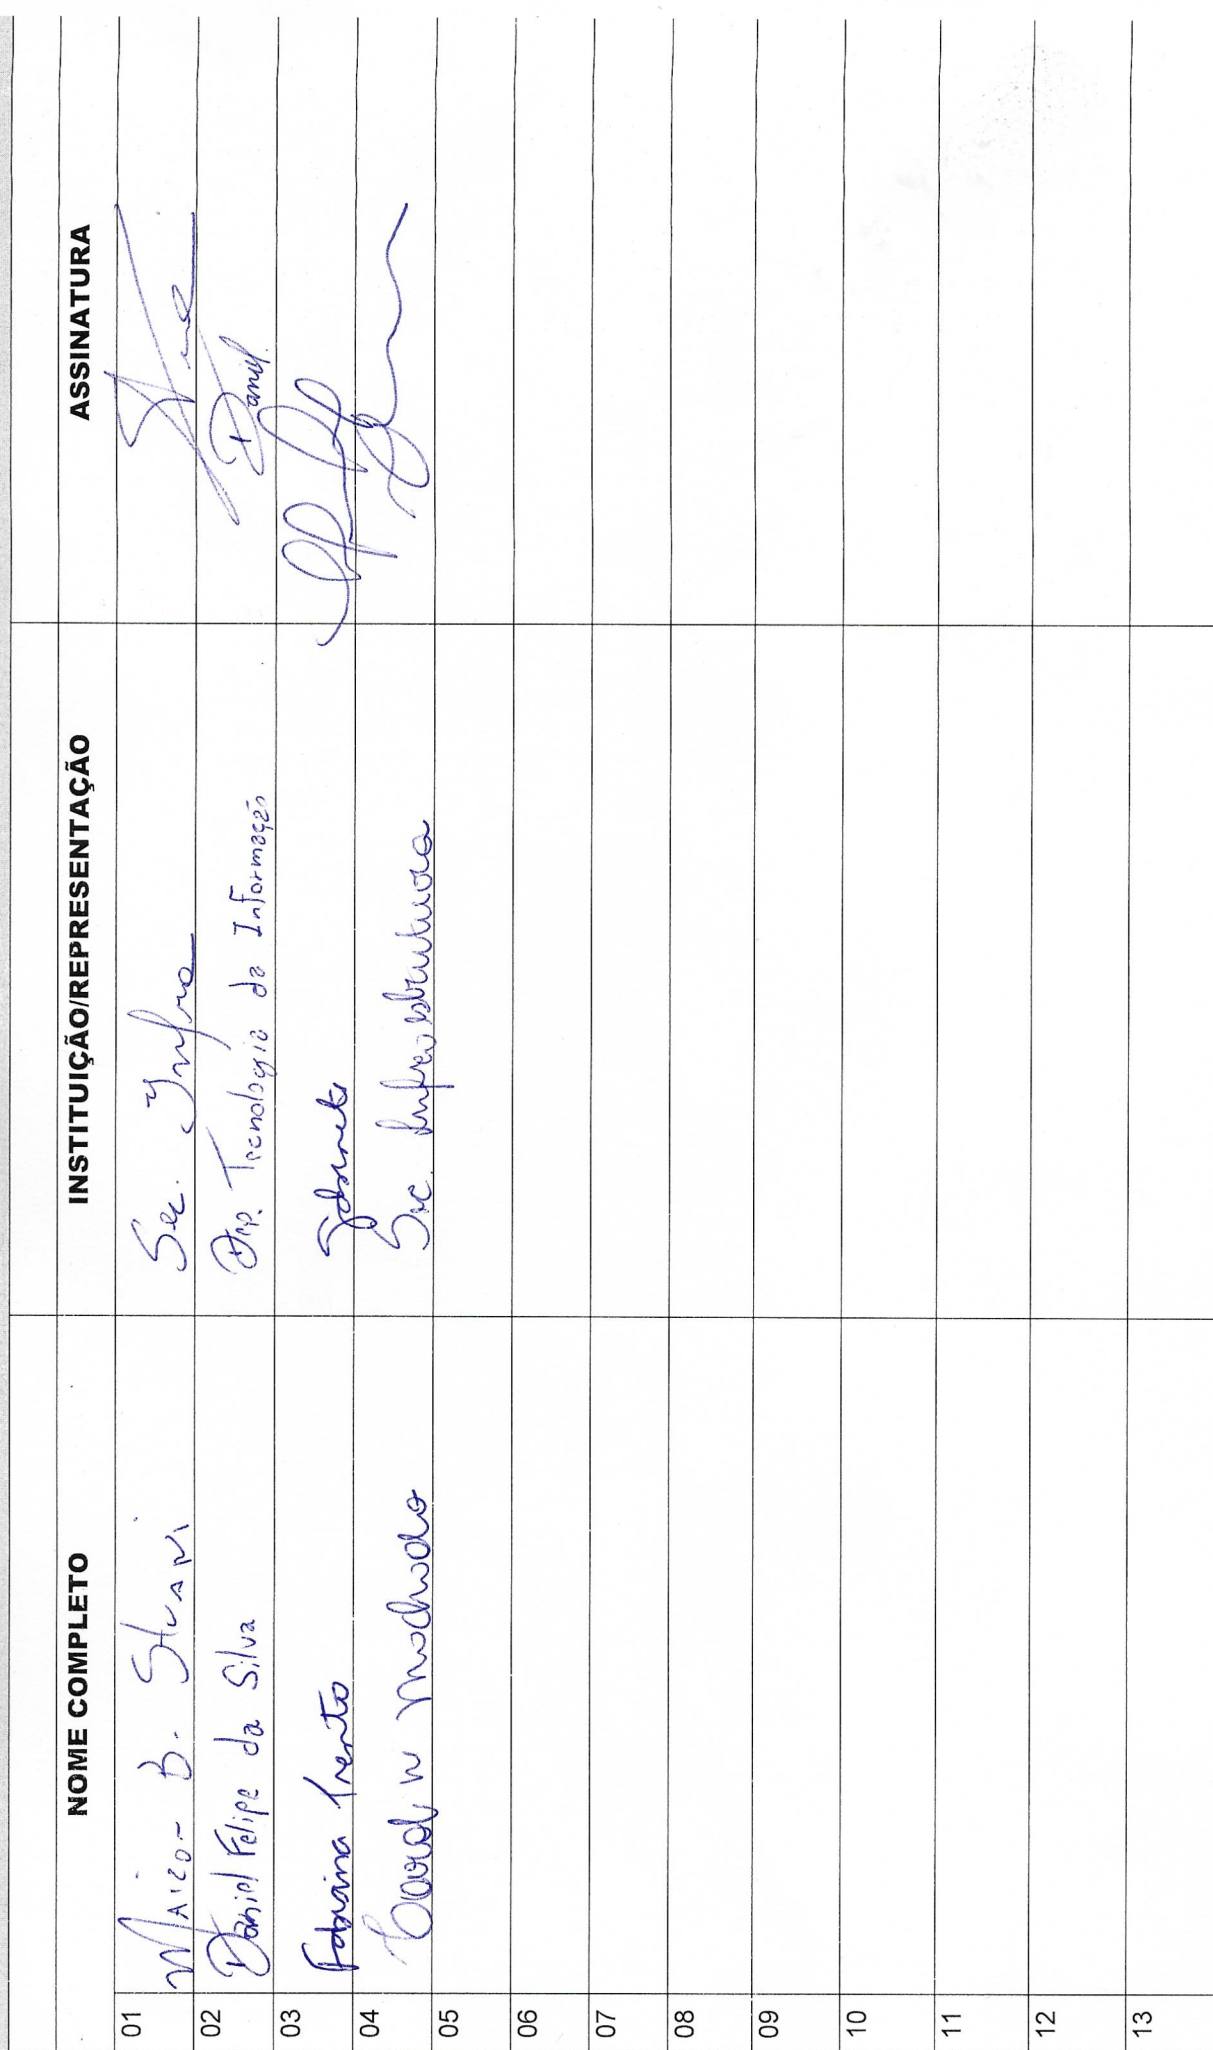 NOME COMPLETO INSTITUIÇÃO/REPRESENTAÇÃO ASSINATURA
01 B. Sec. Infra
02 Daniel Felipe da Silva Dep. Tecnologia da Informação Daniel
03 Fabiana Trento Gabinete
04 Machado Sec. Infraestrutura
05
06
07
08
09
10
11
12
13